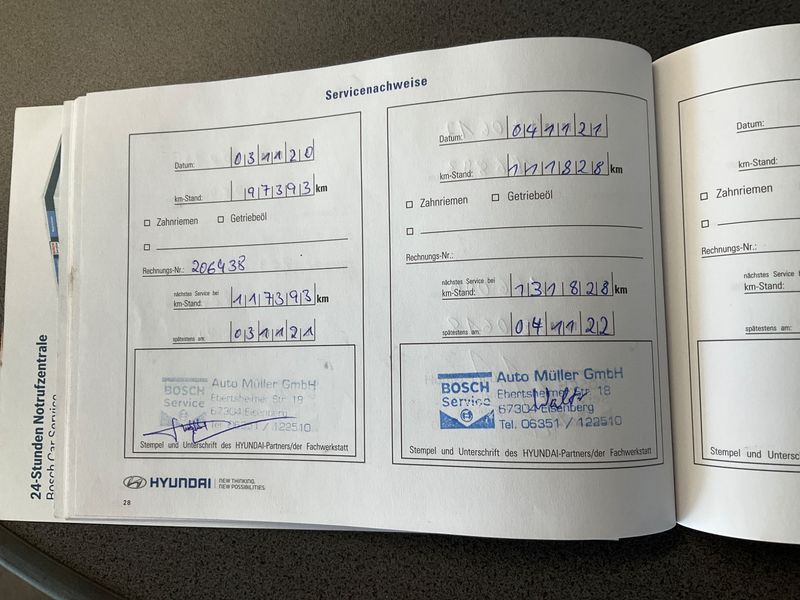 Servicenachweise
Datum: 031120
km-Stand: 97393 km
Zahnriemen Getriebeöl
Rechnungs-Nr.: 206438
nächstes Service bei
km-Stand: 117393 km
spätestens am: 031121
BOSCH
Service
Auto Müller GmbH
Ebertsheimer Str. 19
67304 Eisenberg
Tel. 06351 / 122510
Stempel und Unterschrift des HYUNDAI-Partners/der Fachwerkstatt
Datum: 041121
km-Stand: 111828 km
Zahnriemen Getriebeöl
Rechnungs-Nr.:
nächstes Service bei
km-Stand: 131828 km
spätestens am: 041122
BOSCH
Service
Auto Müller GmbH
Ebertsheimer Str. 19
67304 Eisenberg
Tel. 06351 / 122510
Stempel und Unterschrift des HYUNDAI-Partners/der Fachwerkstatt
HYUNDAI
NEW THINKING.
NEW POSSIBILITIES.
28
Datum:
km-Stand:
Zahnriemen
Rechnungs-Nr.:
nächstes Service bei
km-Stand:
spätestens am:
Stempel und Unterschri
24-Stunden Notrufzentrale
Bosch Car Service